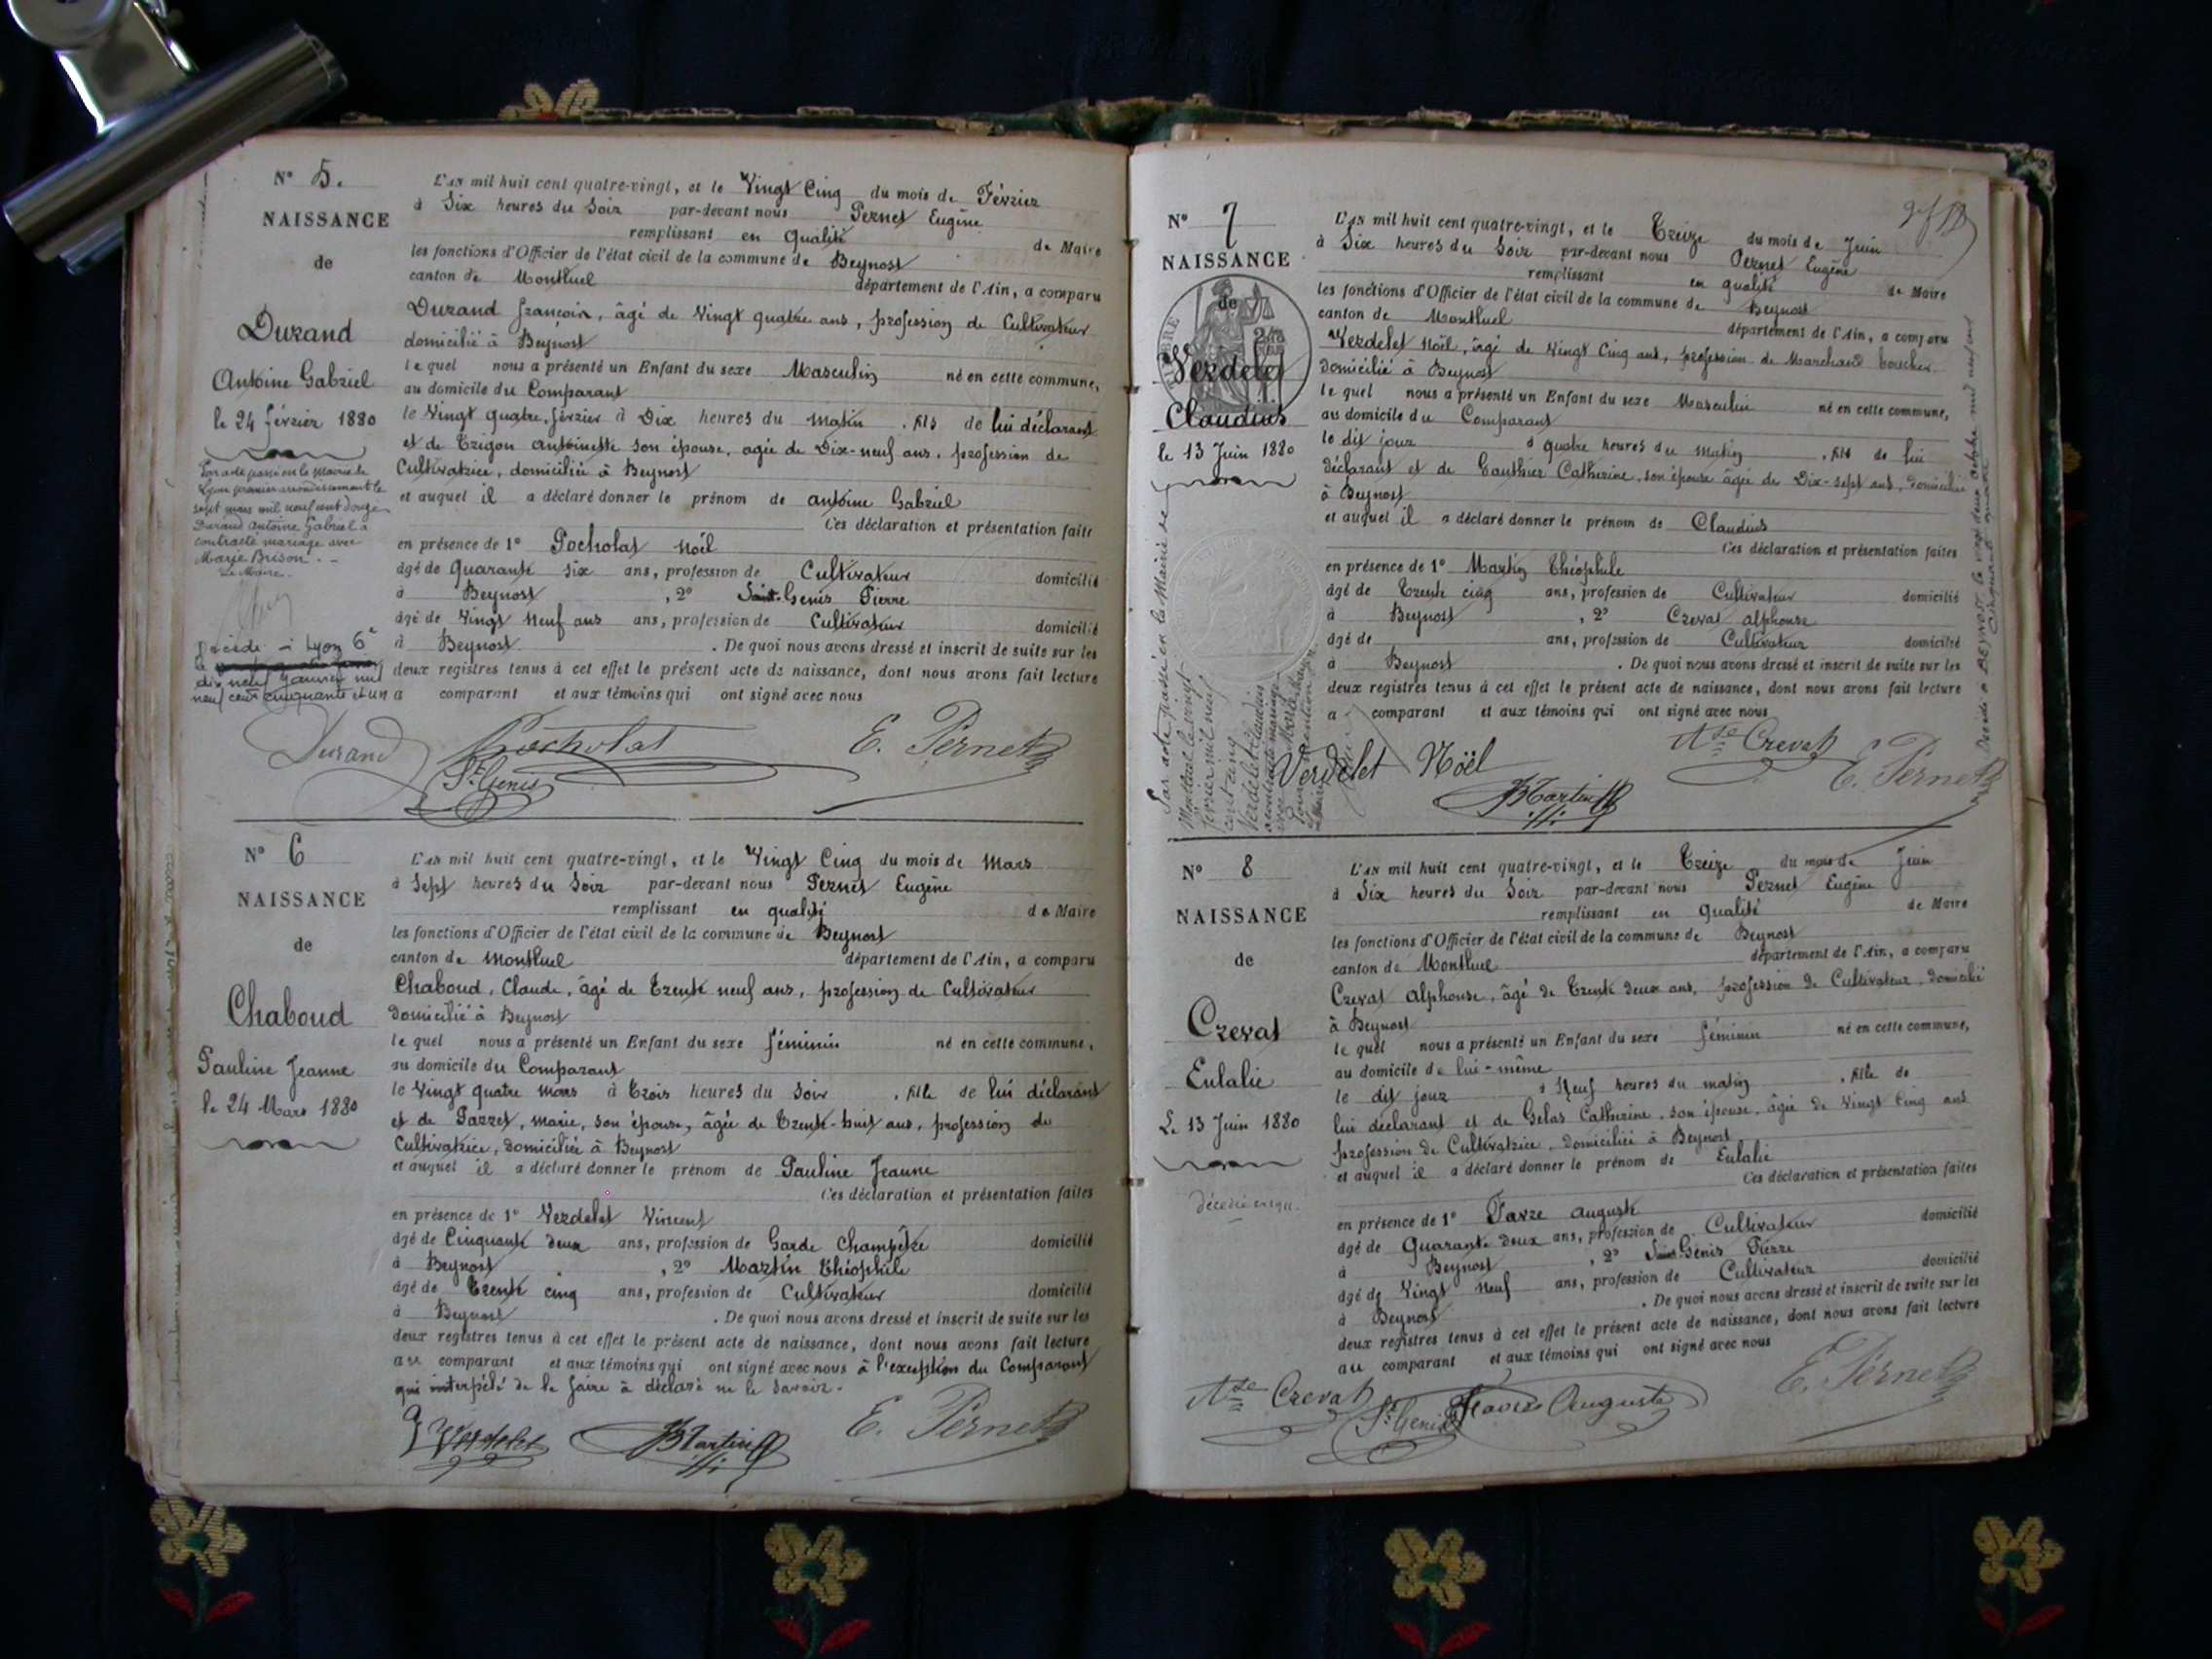 N° 5.
NAISSANCE
de
Durand
Antoine Gabriel
le 24 février 1880
Par acte passé en la Mairie de
Lyon premier arrondissement le
sept mars mil neuf cent douze
Durand Antoine Gabriel a
contracté mariage avec
Marie Brison. -
Le Maire.
Décédé à Lyon 6e
le
dix neuf janvier mil
neuf cent cinquante et un
L'an mil huit cent quatre-vingt, et le Vingt Cinq du mois de Février
à Six heures du Soir par-devant nous Pernet Eugène
remplissant en qualité de Maire
les fonctions d'Officier de l'état civil de la commune de Beynost
canton de Montluel département de l'Ain, a comparu
Durand françois, âgé de Vingt quatre ans, profession de Cultivateur
domicilié à Beynost
le quel nous a présenté un Enfant du sexe Masculin né en cette commune,
au domicile du Comparant
le Vingt quatre février à Dix heures du matin, fils de lui déclarant
et de Trigon antoinette son épouse, agée de Dix-neuf ans, profession de
Cultivatrice, domiciliée à Beynost
et auquel il a déclaré donner le prénom de antoine Gabriel
Ces déclaration et présentation faite
en présence de 1° Pocholat Noël
âgé de Quarante six ans, profession de Cultivateur domicilié
à Beynost, 2° Saint-Genis Pierre
âgé de Vingt Neuf ans ans, profession de Cultivateur domicilié
à Beynost. De quoi nous avons dressé et inscrit de suite sur les
deux registres tenus à cet effet le présent acte de naissance, dont nous avons fait lecture
a comparant et aux témoins qui ont signé avec nous
Durand Pocholat E. Pernet
St Genis
N° 6
NAISSANCE
de
Chaboud
Pauline Jeanne
le 24 Mars 1880
L'an mil huit cent quatre-vingt, et le Vingt Cinq du mois de Mars
à Sept heures du Soir par-devant nous Pernet Eugène
remplissant en qualité de Maire
les fonctions d'Officier de l'état civil de la commune de Beynost
canton de Montluel département de l'Ain, a comparu
Chaboud, Claude, âgé de Trente neuf ans, profession de Cultivateur
domicilié à Beynost
le quel nous a présenté un Enfant du sexe féminin né en cette commune,
au domicile du Comparant
le Vingt quatre Mars à Trois heures du Soir, fille de lui déclarant
et de Pazzet, marie, son épouse, âgée de Trente-huit ans, profession de
Cultivatrice, domiciliée à Beynost
et auquel il a déclaré donner le prénom de Pauline Jeanne
Ces déclaration et présentation faites
en présence de 1° Verdelet Vincent
âgé de Cinquante deux ans, profession de Garde Champêtre domicilié
à Beynost, 2° Martin Théophile
âgé de Trente cinq ans, profession de Cultivateur domicilié
à Beynost. De quoi nous avons dressé et inscrit de suite sur les
deux registres tenus à cet effet le présent acte de naissance, dont nous avons fait lecture
au comparant et aux témoins qui ont signé avec nous à l'exception du Comparant
qui interpélé de le faire à déclaré ne le savoir.
Verdelet Martin E. Pernet
N° 7
NAISSANCE
de
Verdelet
Claudius
le 13 Juin 1880
Par acte passé en la Mairie de
L'an mil huit cent quatre-vingt, et le Treize du mois de Juin
à Six heures du Soir par-devant nous Pernet Eugène
remplissant en qualité de Maire
les fonctions d'Officier de l'état civil de la commune de Beynost
canton de Montluel département de l'Ain, a comparu
Verdelet Noël, âgé de Vingt Cinq ans, profession de Marchand boucher
domicilié à Beynost
le quel nous a présenté un Enfant du sexe Masculin né en cette commune,
au domicile du Comparant
le dit jour à quatre heures du Matin, fils de lui
déclarant et de Gauthier Catherine, son épouse âgée de Dix-sept ans, domiciliée
à Beynost
et auquel il a déclaré donner le prénom de Claudius
Ces déclaration et présentation faites
en présence de 1° Martin Théophile
âgé de Trente cinq ans, profession de Cultivateur domicilié
à Beynost, 2° Crevat alphonse
âgé de ans, profession de Cultivateur domicilié
à Beynost. De quoi nous avons dressé et inscrit de suite sur les
deux registres tenus à cet effet le présent acte de naissance, dont nous avons fait lecture
a comparant et aux témoins qui ont signé avec nous
Verdelet Noël Martin Ase Crevat E. Pernet
Décédé à BEYNOST le vingt deux octobre mil neuf cent
cinquante quatre
N° 8
NAISSANCE
de
Crevat
Eulalie
Le 13 Juin 1880
Décédée en 1911.
L'an mil huit cent quatre-vingt, et le Treize du mois de Juin
à Six heures du Soir par-devant nous Pernet Eugène
remplissant en qualité de Maire
les fonctions d'Officier de l'état civil de la commune de Beynost
canton de Montluel département de l'Ain, a comparu
Crevat Alphonse, âgé de Trente deux ans, profession de Cultivateur, domicilié
à Beynost
le quel nous a présenté un Enfant du sexe féminin né en cette commune,
au domicile de lui-même
le dit jour à Neuf heures du matin, fille de
lui déclarant et de Gelas Catherine, son épouse, âgée de Vingt Cinq ans
profession de Cultivatrice, domiciliée à Beynost
et auquel il a déclaré donner le prénom de Eulalie
Ces déclaration et présentation faites
en présence de 1° Favre auguste
âgé de Quarante deux ans, profession de Cultivateur domicilié
à Beynost, 2° Saint-Génis Pierre
âgé de Vingt Neuf ans, profession de Cultivateur domicilié
à Beynost. De quoi nous avons dressé et inscrit de suite sur les
deux registres tenus à cet effet le présent acte de naissance, dont nous avons fait lecture
au comparant et aux témoins qui ont signé avec nous
Ase Crevat St Genis Favre Auguste E. Pernet